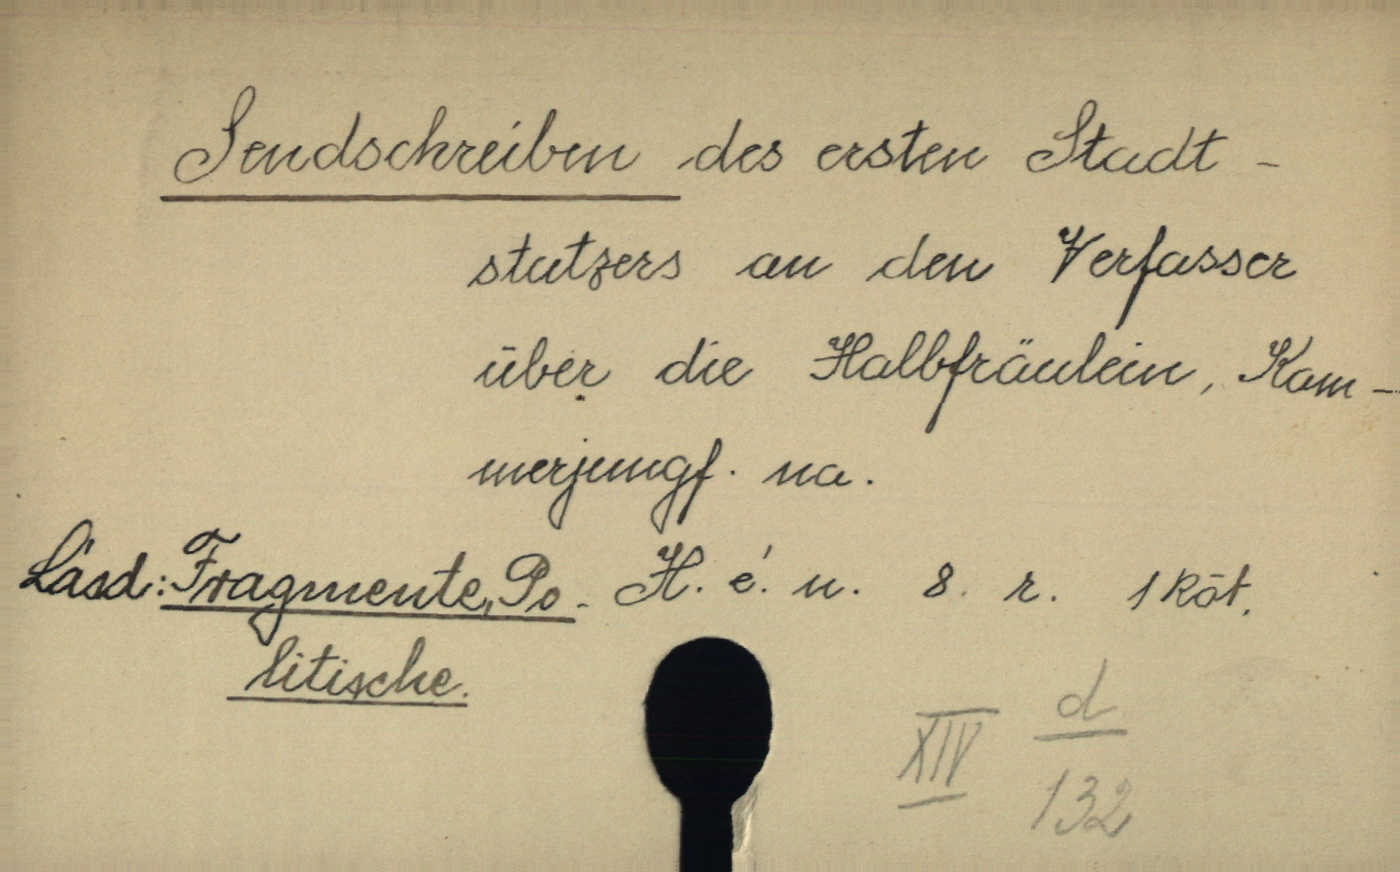 Sendschreiben des ersten Stadt-
stutzers an den Verfasser
über die Halbfräulein, Kam-
merjungf. na.
Lásd: Fragmente, Po- H. é. n. 8. r. 1 köt.
litische.
XIV d
132